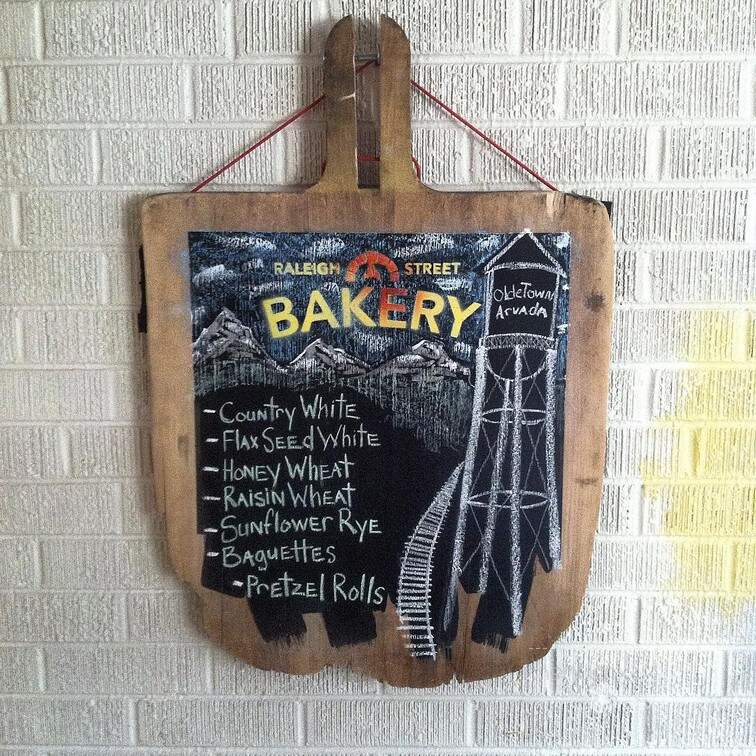 RALEIGH STREET
BAKERY
OldeTown
Arvada
- Country White
- Flax Seed White
- Honey Wheat
- Raisin Wheat
- Sunflower Rye
- Baguettes
- Pretzel Rolls